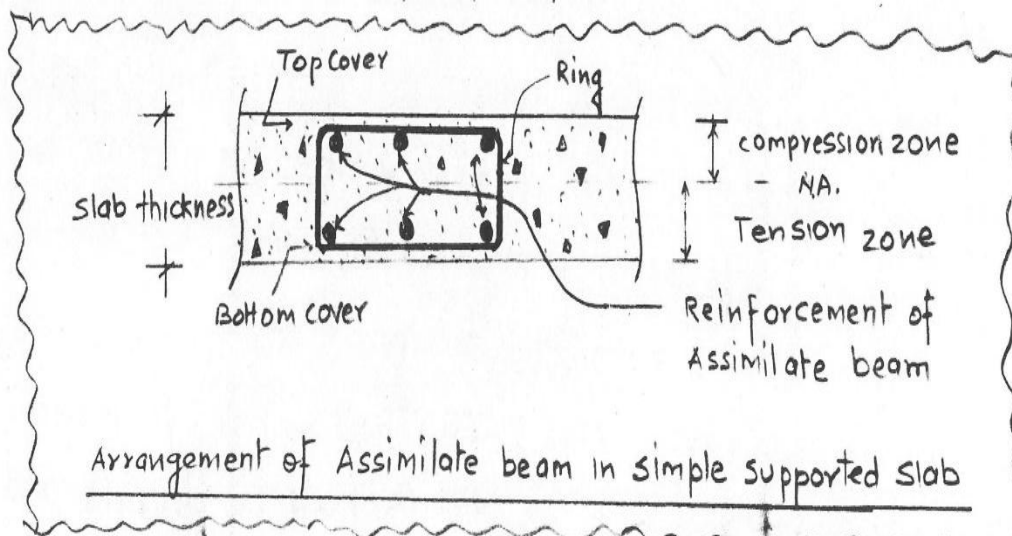 Top Cover
Ring
compression zone
NA.
Slab thickness
Tension zone
Bottom cover
Reinforcement of
Assimilate beam
Arrangement of Assimilate beam in simple supported slab